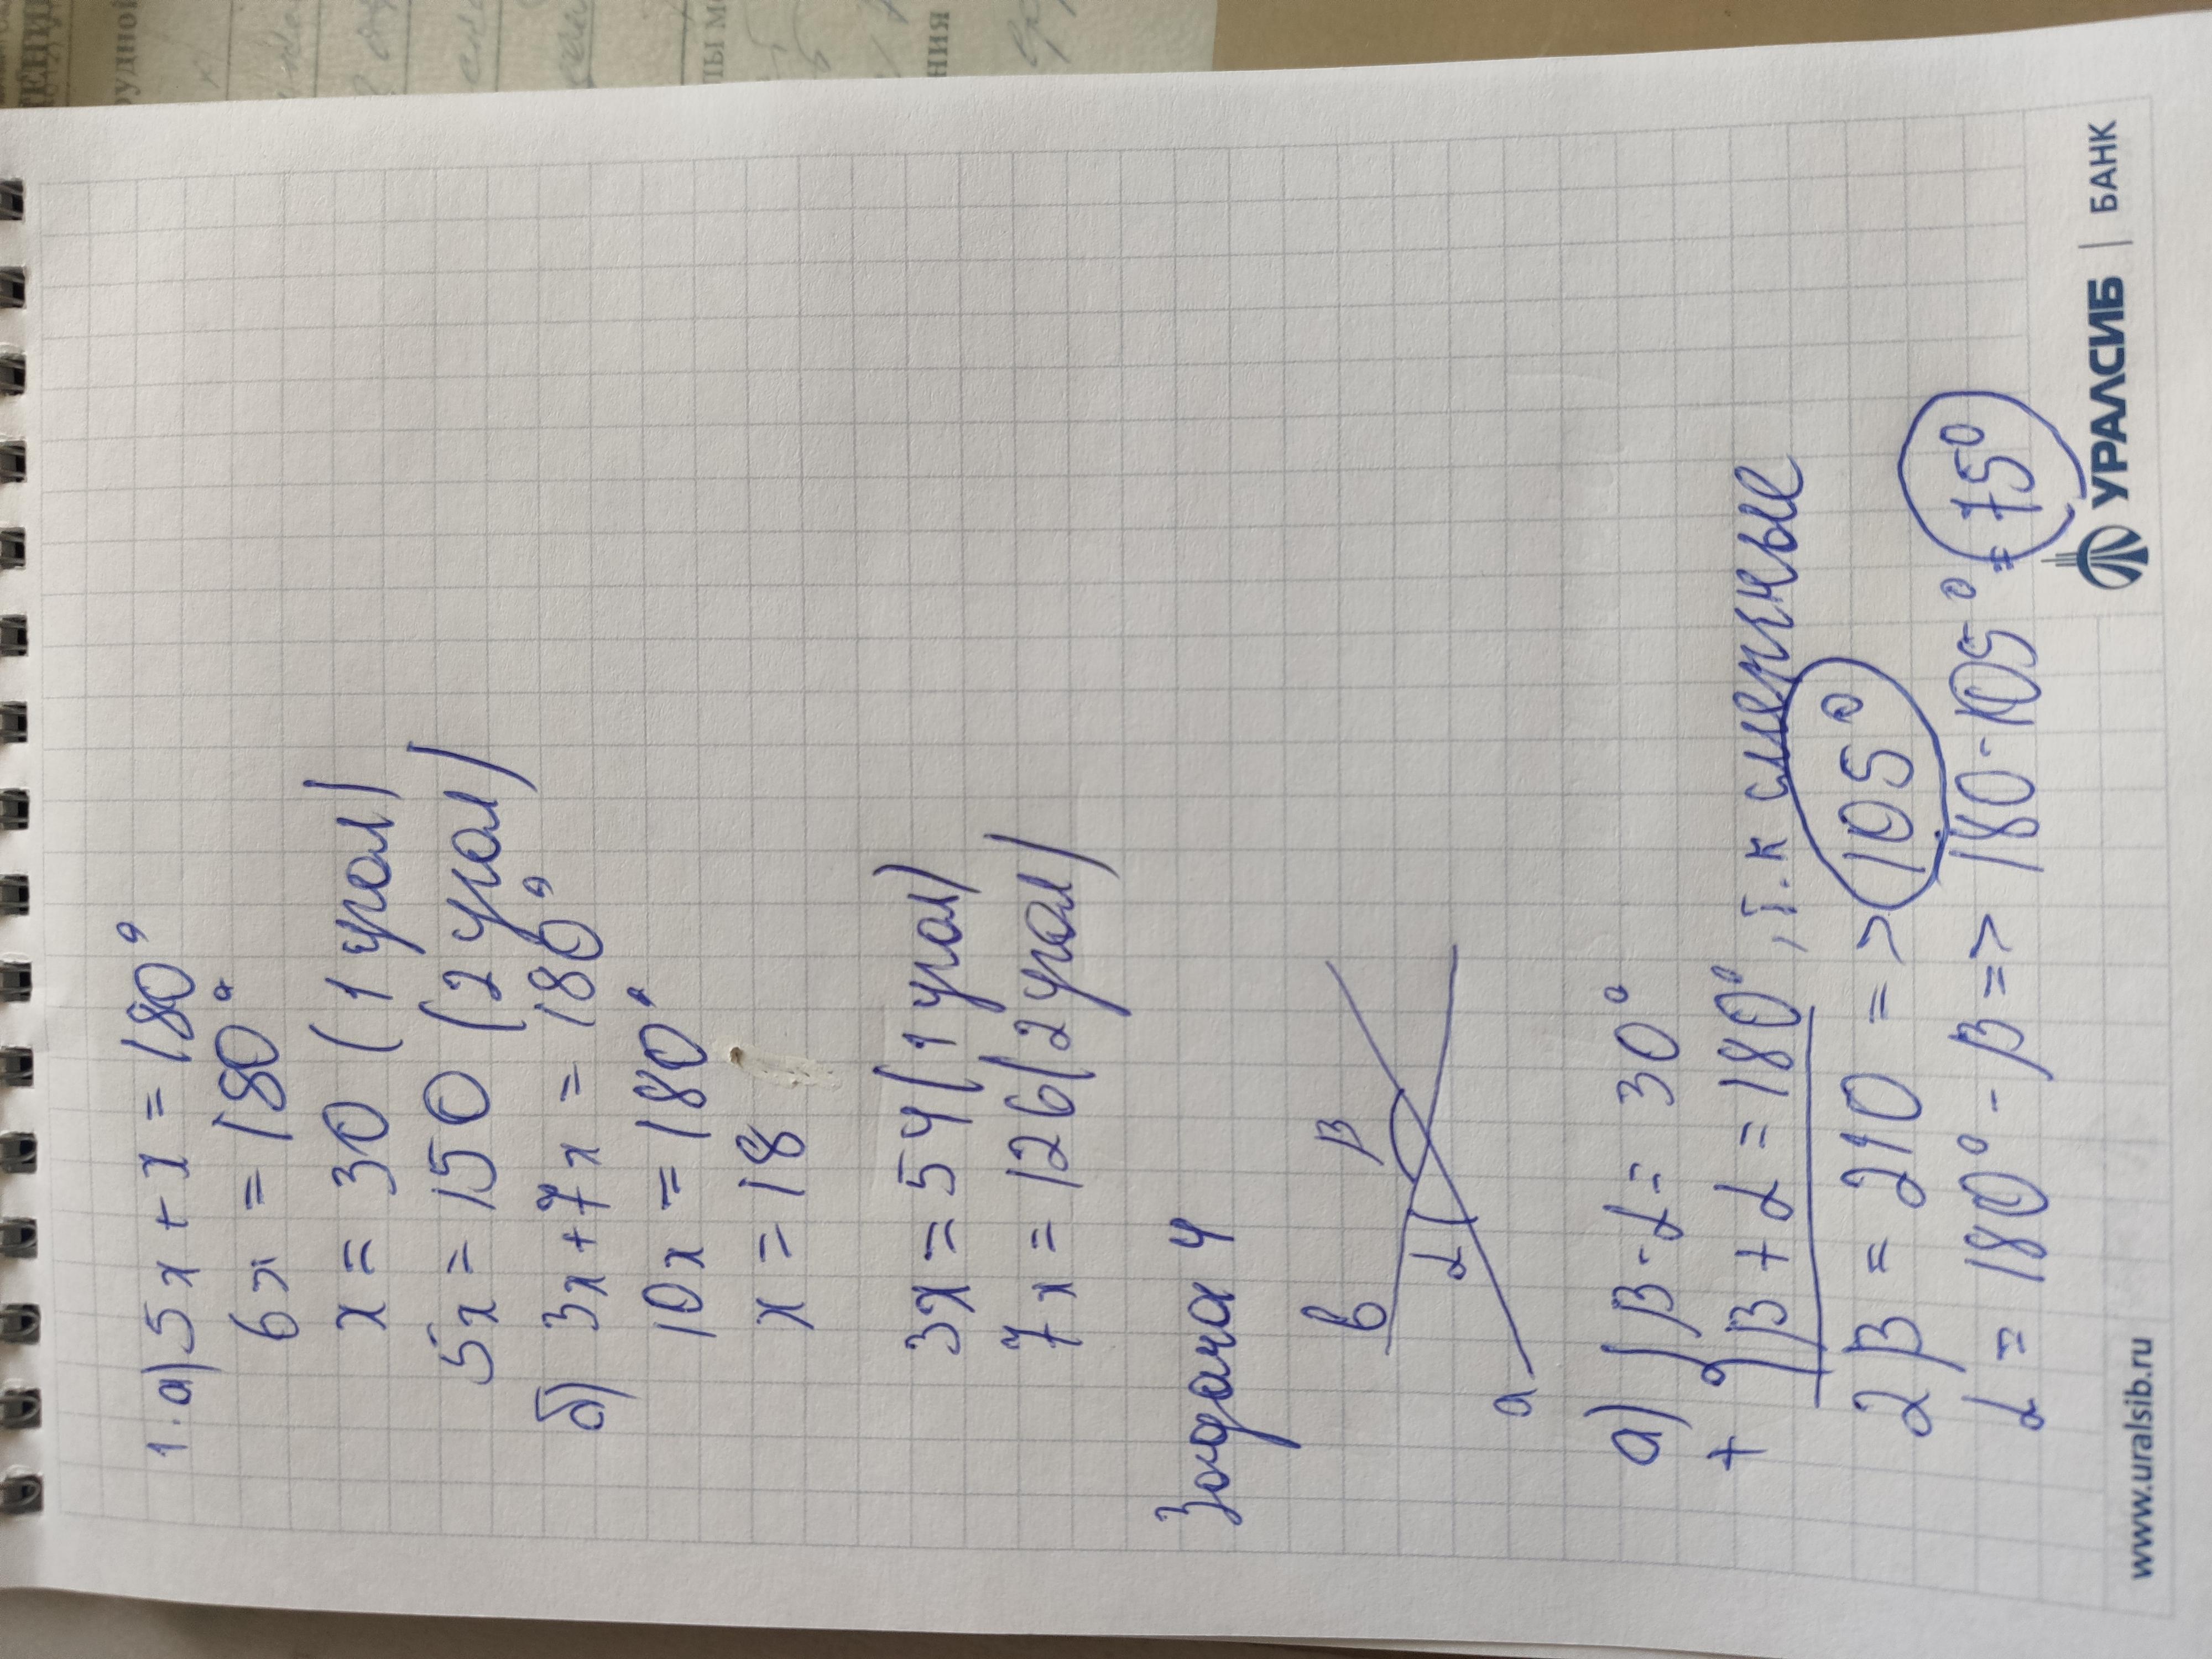 1.а) 5x + x = 180°
6x = 180°
x = 30 (1 угол)
5x = 150 (2 угол)
б) 3x + 7x = 180°
10x = 180°
x = 18
3x = 54 (1 угол)
7x = 126 (2 угол)
Задача 4
в β
α
а
а) β - α = 30°
+ β + α = 180°, т.к смежные
2β = 210 => 105°
α = 180° - β => 180 - 105° = 75°
www.uralsib.ru УРАЛСИБ | БАНК